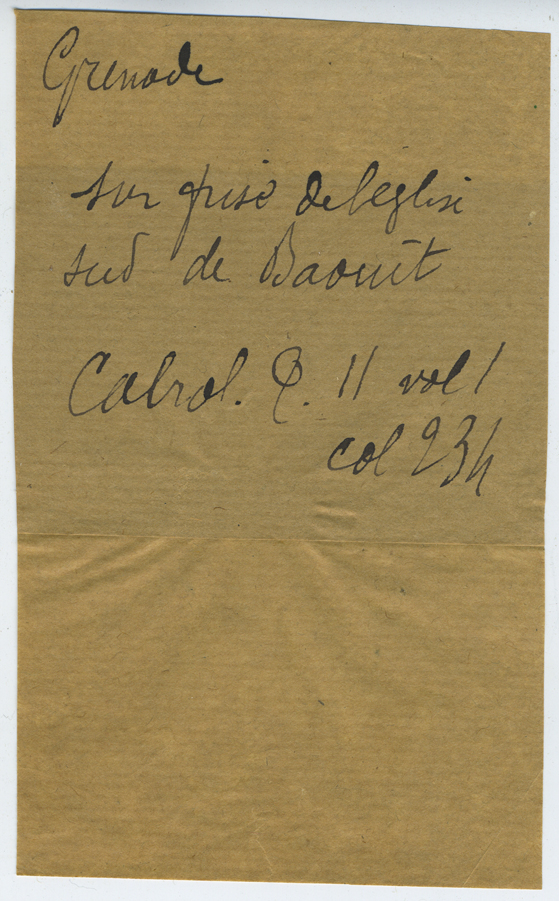 Grenade
sur frise de l'eglise
sud de Baouit
Cabrol. P. 11 vol 1
col 234